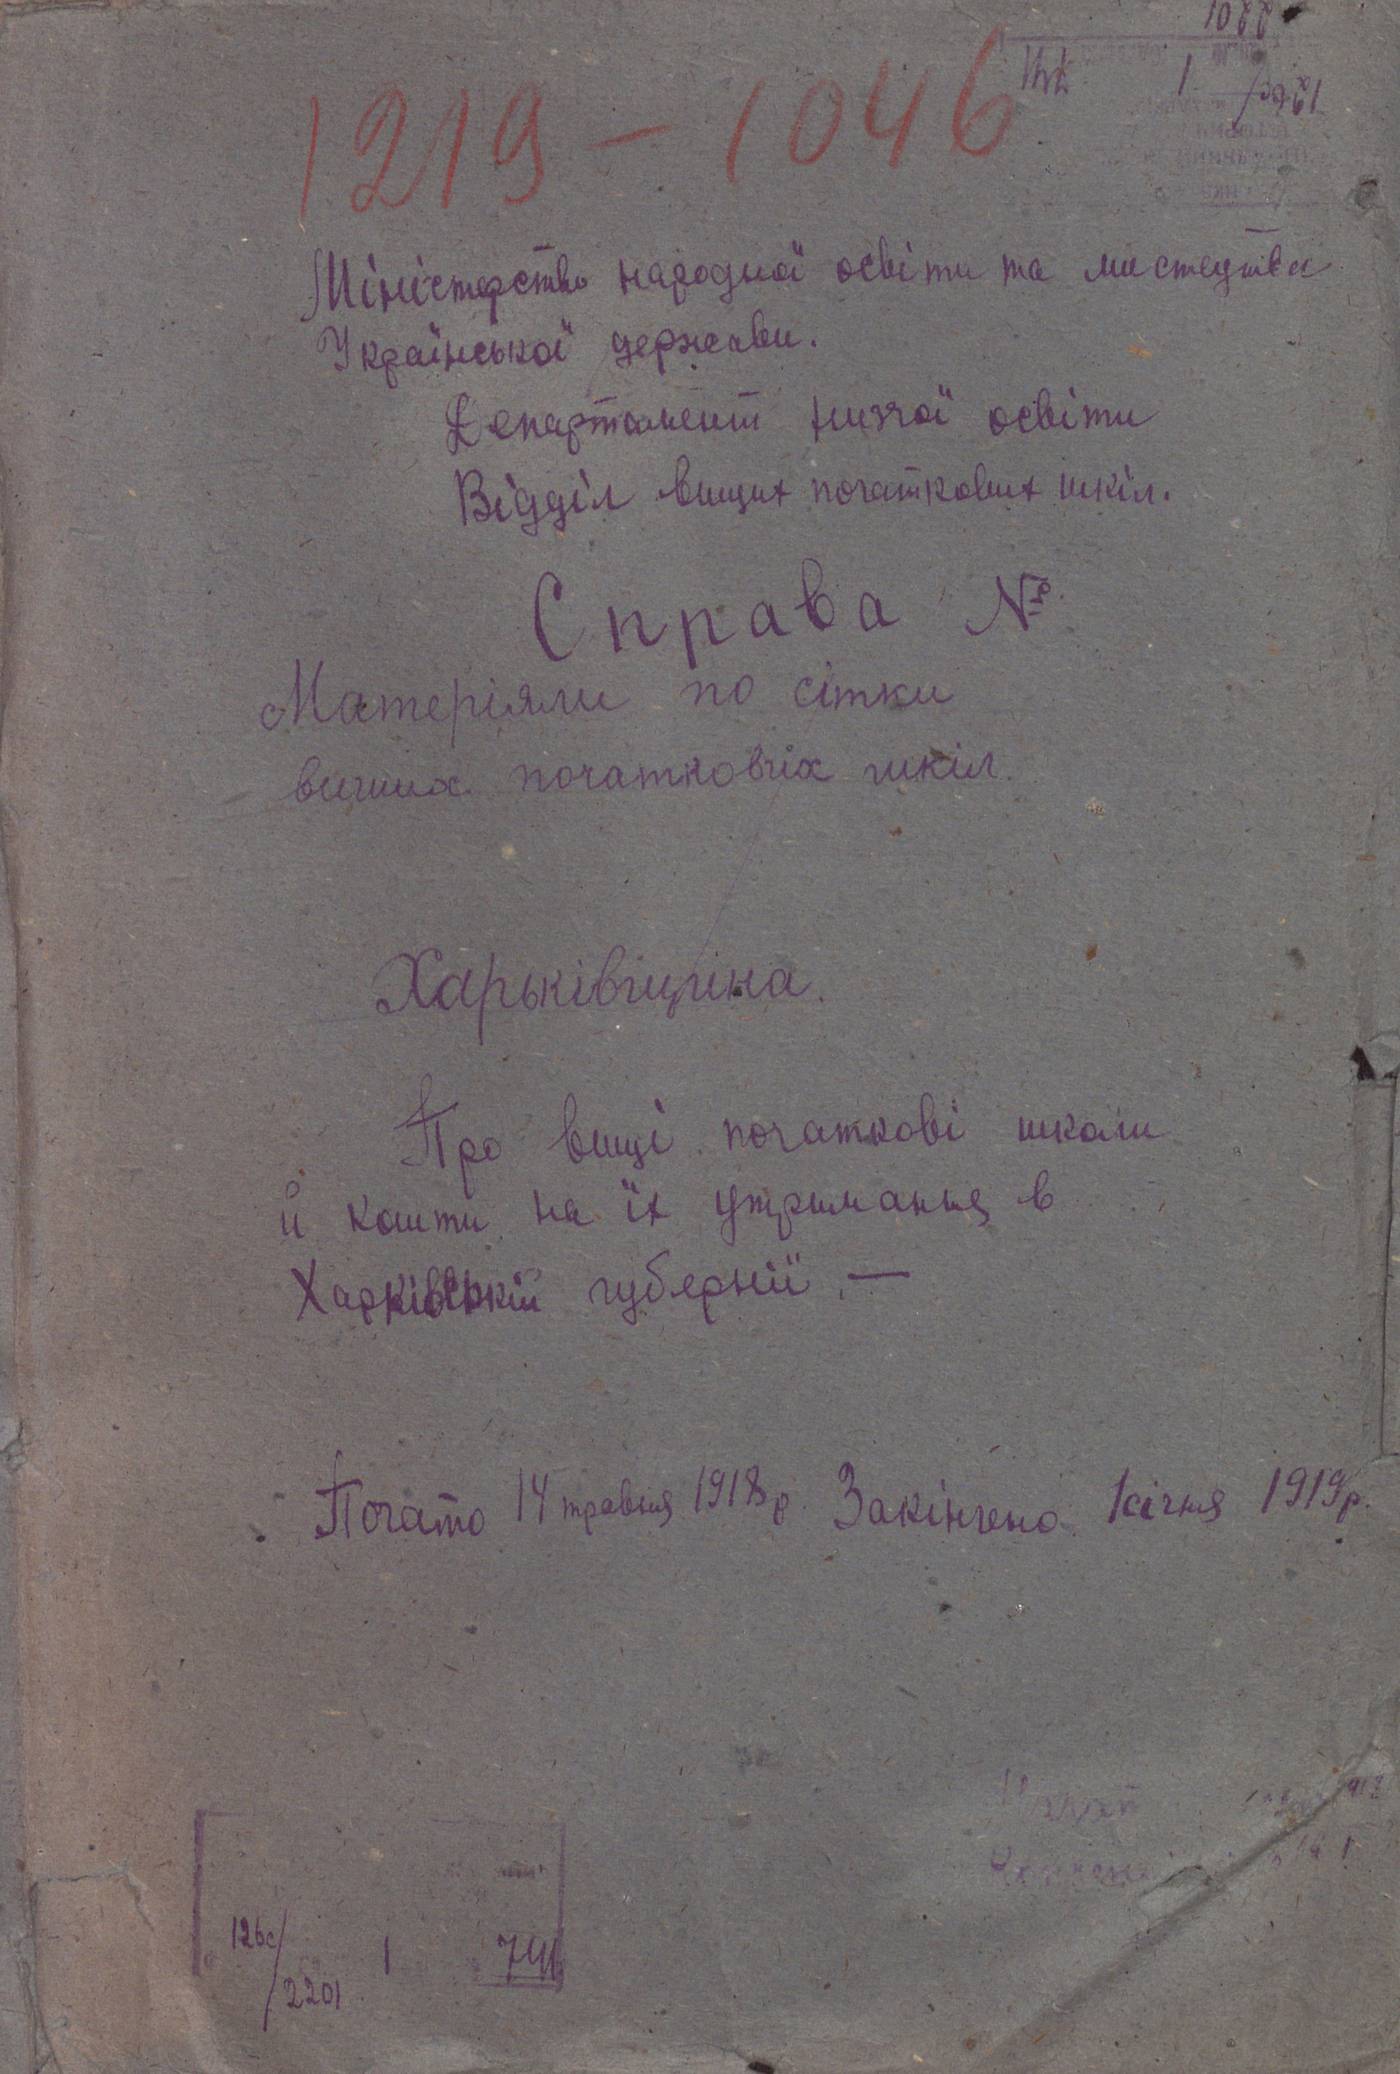 2201
126с/ 1 741
1219 – 1046
Міністерство народної освіти та мистецтва
Української держави.
Департамент низчої освіти
Відділ вищих початкових шкіл.
Справа №
Матеріяли по сітки
вищих початковіх шкіл.
Харьківщина.
Про вищі початкові школи
й кошти на їх утримання в
Харківській губернії. —
Почато 14 травня 1918 р. Закінчено 1 січня 1919 р.
126с/2201 1 741